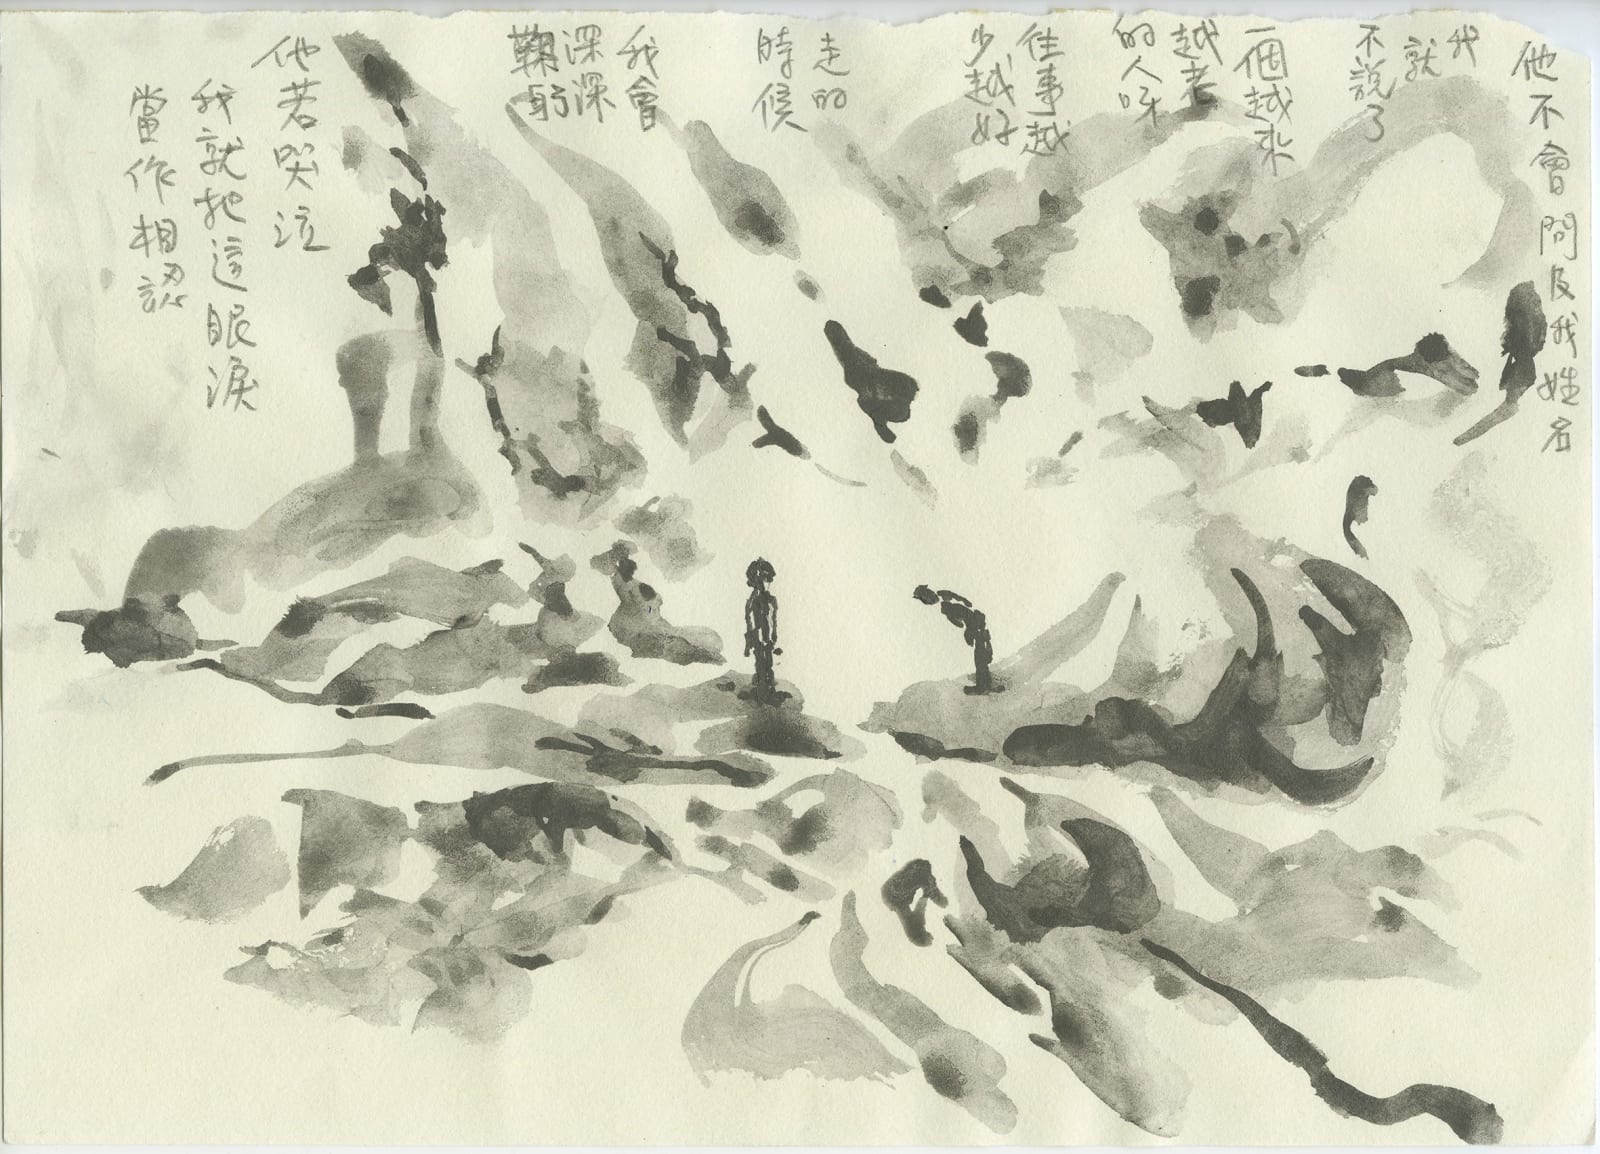 他不會問及我姓名
我
就
不說了
一個越來
越老
的人呀
往事越
少越好
走的
時候
我會
深深
鞠躬
他若哭泣
我就把這眼淚
當作相認